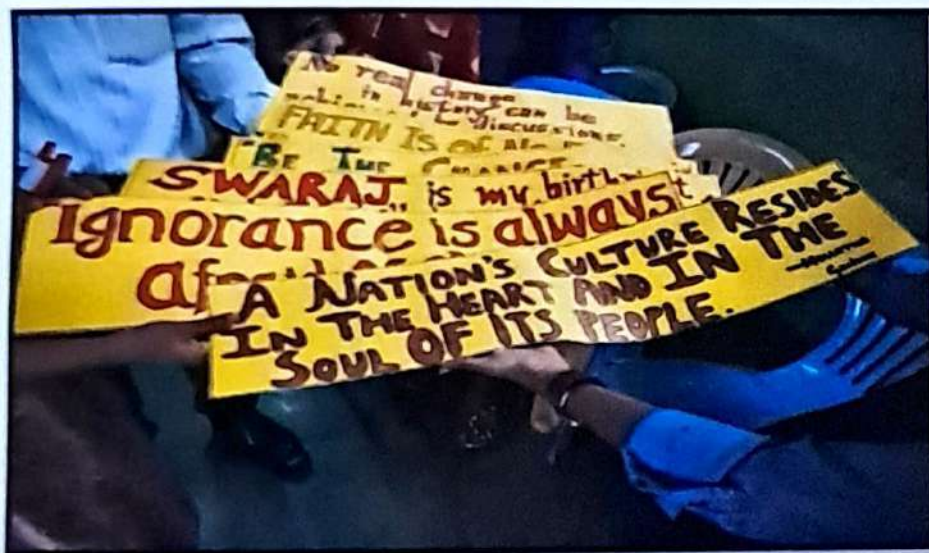 No real change
in history can be
discussions.
FAITH IS OF NO
"BE THE CHANGE
SWARAJ is my birth
Ignorance is always
af
A NATION'S CULTURE RESIDES
IN THE HEART AND IN THE
SOUL OF ITS PEOPLE.